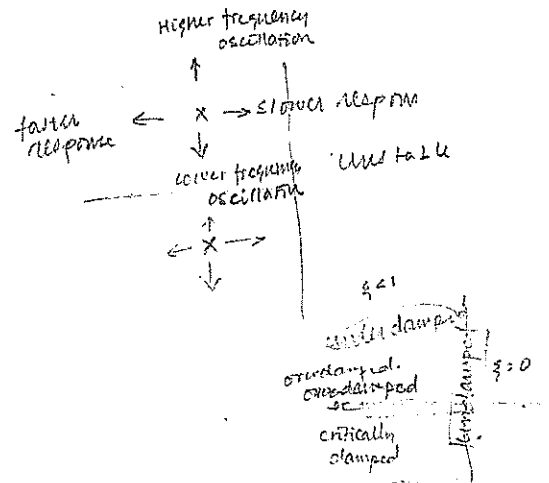 Higher frequency
oscillation
faster
response
slower respons
lower frequency
oscillation
Unstable
ξ<1
underdamped
ξ=0
undamped
overdamped.
overdamped
critically
damped